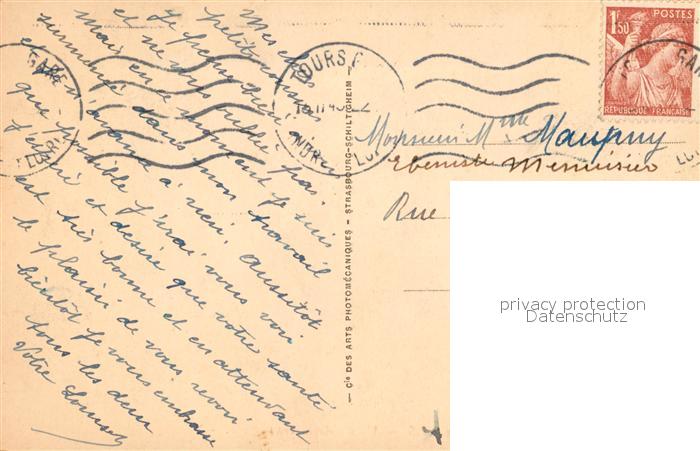 Mes chers
petits cousins
Je pense bien à vous
et ne vous oublie pas.
Mais en ce moment je suis
surmené dans mon travail
et n'avance à rien. aussitôt
que possible j'irai vous voir
J'espère et désire que votre santé
est très bonne et en attendant
le plaisir de vous revoir
bientôt je vous embrasse
tous les deux
Votre
Cie DES ARTS PHOTOMÉCANIQUES - STRASBOURG-SCHILTIGHEIM
GARE
TOURS
GARE
POSTES
1F50
RÉPUBLIQUE FRANÇAISE
Monsieur Mme Maupuy
Ebeniste Menuisier
Rue
privacy protection
Datenschutz